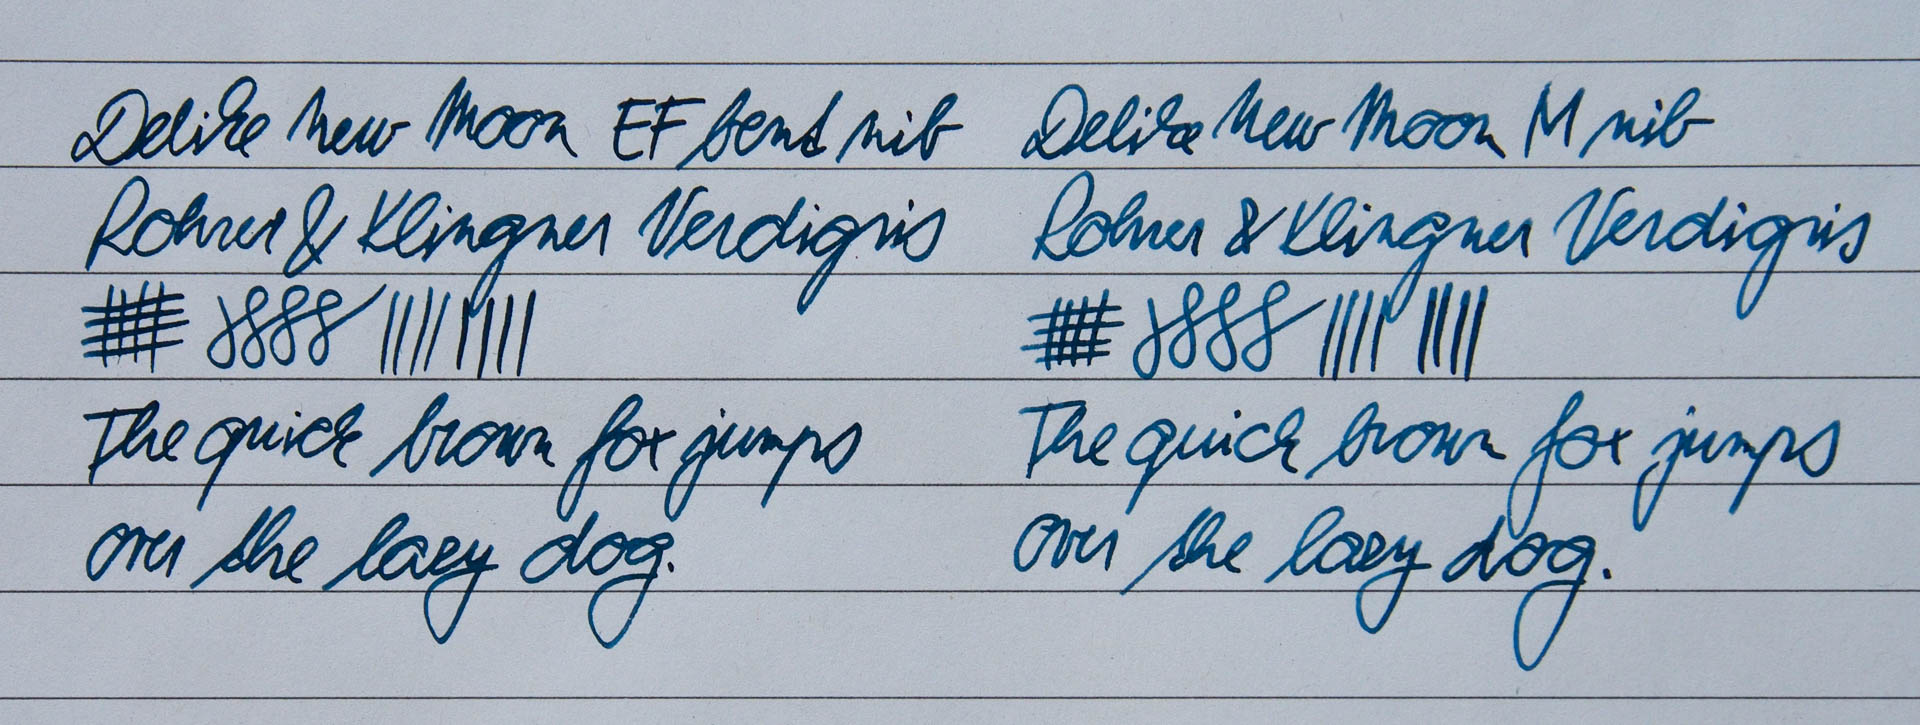 Delike New Moon EF bent nib
Rohrer & Klingner Verdigris
The quick brown fox jumps
over the lazy dog.
Delike New Moon M nib
Rohrer & Klingner Verdigris
The quick brown fox jumps
over the lazy dog.